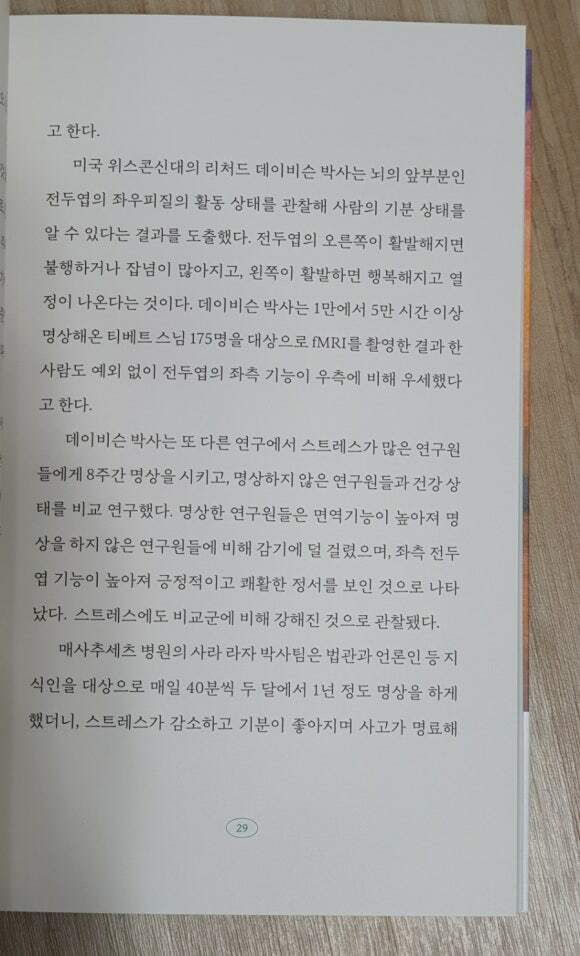 고 한다.
미국 위스콘신대의 리처드 데이비슨 박사는 뇌의 앞부분인
전두엽의 좌우피질의 활동 상태를 관찰해 사람의 기분 상태를
알 수 있다는 결과를 도출했다. 전두엽의 오른쪽이 활발해지면
불행하거나 잡념이 많아지고, 왼쪽이 활발하면 행복해지고 열
정이 나온다는 것이다. 데이비슨 박사는 1만에서 5만 시간 이상
명상해온 티베트 스님 175명을 대상으로 fMRI를 촬영한 결과 한
사람도 예외 없이 전두엽의 좌측 기능이 우측에 비해 우세했다
고 한다.
데이비슨 박사는 또 다른 연구에서 스트레스가 많은 연구원
들에게 8주간 명상을 시키고, 명상하지 않은 연구원들과 건강 상
태를 비교 연구했다. 명상한 연구원들은 면역기능이 높아져 명
상을 하지 않은 연구원들에 비해 감기에 덜 걸렸으며, 좌측 전두
엽 기능이 높아져 긍정적이고 쾌활한 정서를 보인 것으로 나타
났다. 스트레스에도 비교군에 비해 강해진 것으로 관찰됐다.
매사추세츠 병원의 사라 라자 박사팀은 법관과 언론인 등 지
식인을 대상으로 매일 40분씩 두 달에서 1년 정도 명상을 하게
했더니, 스트레스가 감소하고 기분이 좋아지며 사고가 명료해
29